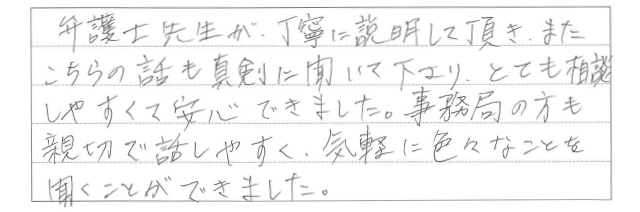 弁護士先生が、丁寧に説明して頂き、また
こちらの話も真剣に聞いて下さり、とても相談
しやすくて安心できました。事務局の方も
親切で話しやすく、気軽に色々なことを
聞くことができました。